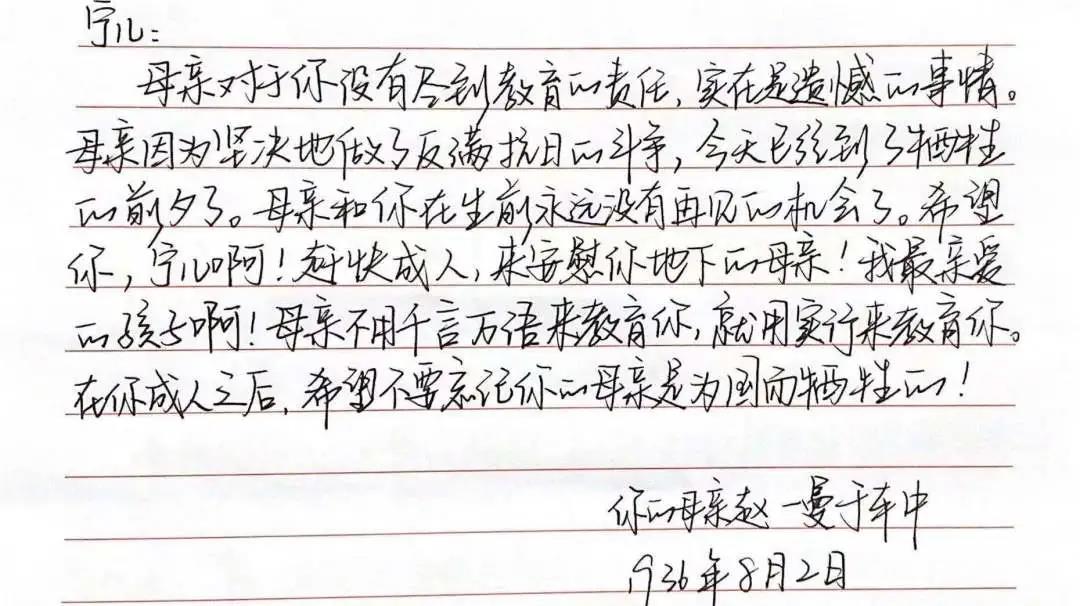 宁儿：
母亲对于你没有尽到教育的责任，实在是遗憾的事情。
母亲因为坚决地做了反满抗日的斗争，今天已经到了牺牲
的前夕了。母亲和你在生前永远没有再见的机会了。希望
你，宁儿啊！赶快成人，来安慰你地下的母亲！我最亲爱
的孩子啊！母亲不用千言万语来教育你，就用实行来教育你。
在你成人之后，希望不要忘记你的母亲是为国而牺牲的！
你的母亲赵一曼于车中
1936年8月2日